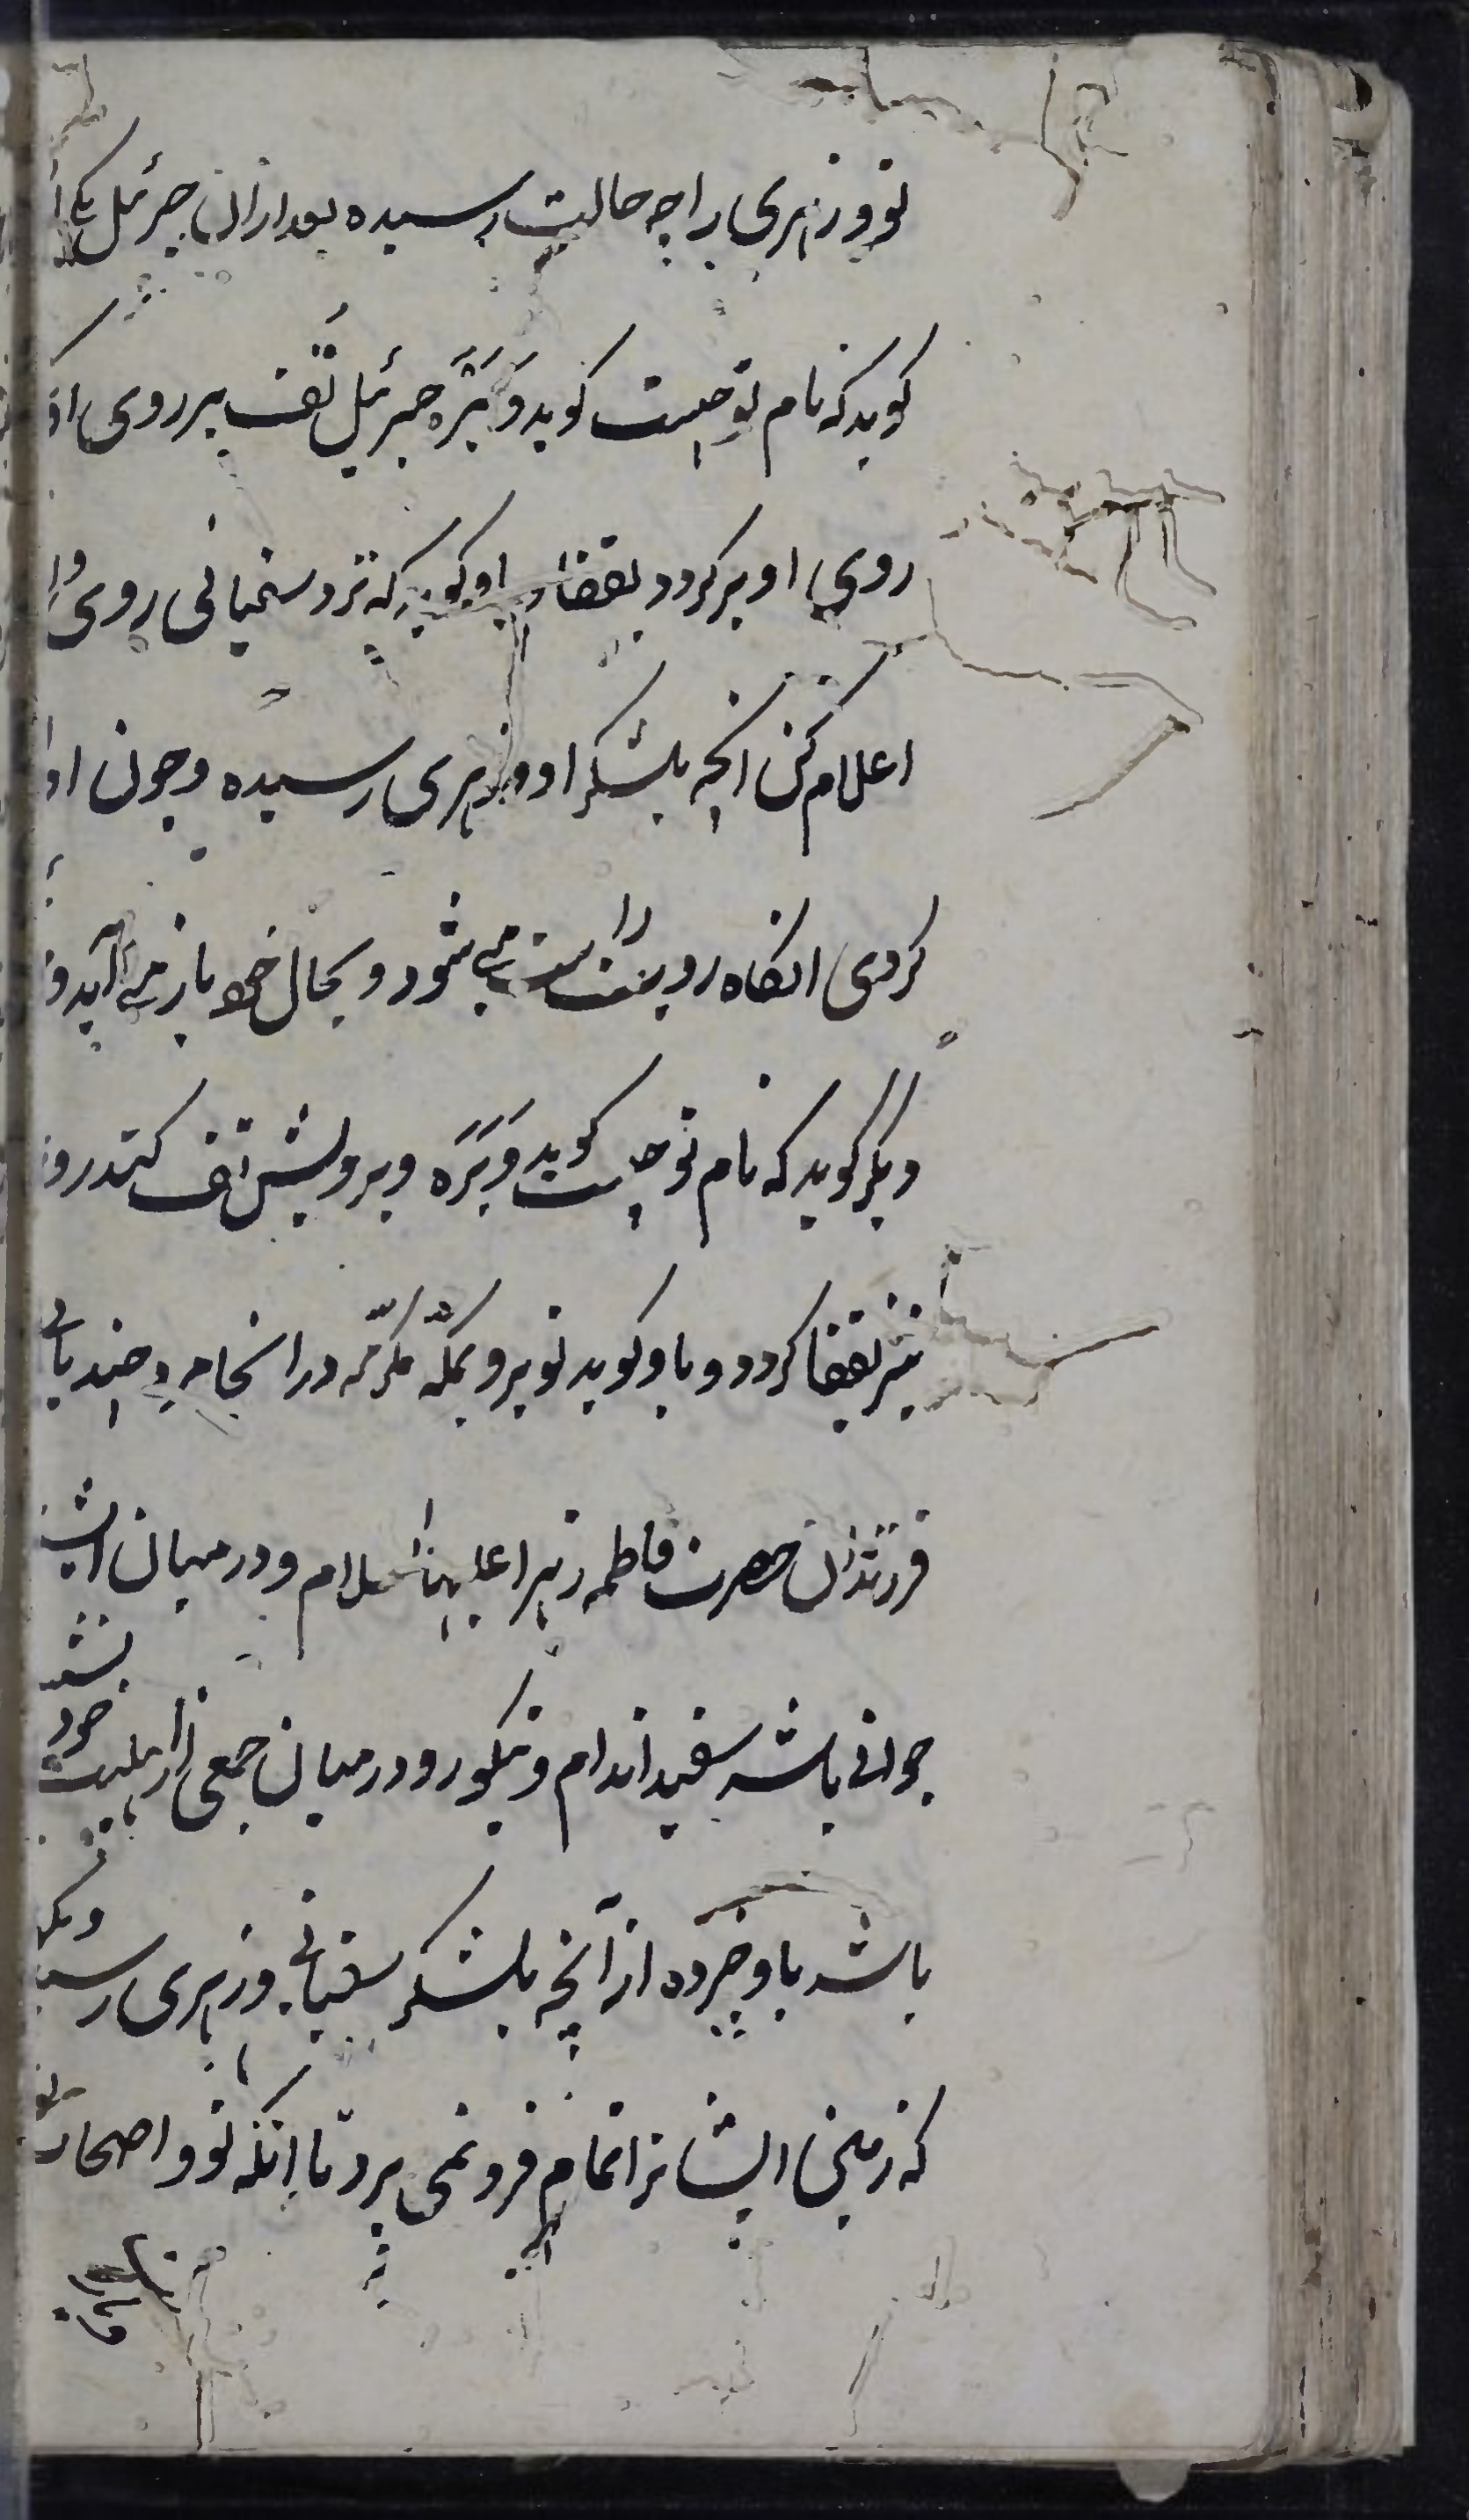 تو و زهری را چه حالت رسیده بعد ازان جبرئیل یکی
کوید که نام تو چیست کوید وَتَرَه جبرئیل تُف بر روی او
روی او برکردد بقفا و باو کوید که نزد سفیانی روی و او را
اعلام کن انچه بلشکر او و زهری رسیده و چون او را
کردی انکاه رویت راست می شود و بحال خود باز می آید و
دیگر کوید که نام تو چیست کوید وَتَرَه و برویش تف کند رو
نیز بقفا کردد و باو کوید تو برو بمکّه مکرّمه در انجا مردِ چند یابی
فرزندان حضرت فاطمه زهرا علیها السلام و در میان ایشان
جوانی باشد سفید اندام و نیکو رو در میان جمعی از اهلبیت خود نشسته
باشد باو خبر ده از آنچه بلشکر سفیانی و زهری رسید و بکو
که زمین ایشانرا تمام فرو نمی برد تا انکه تو و اصحاب تو